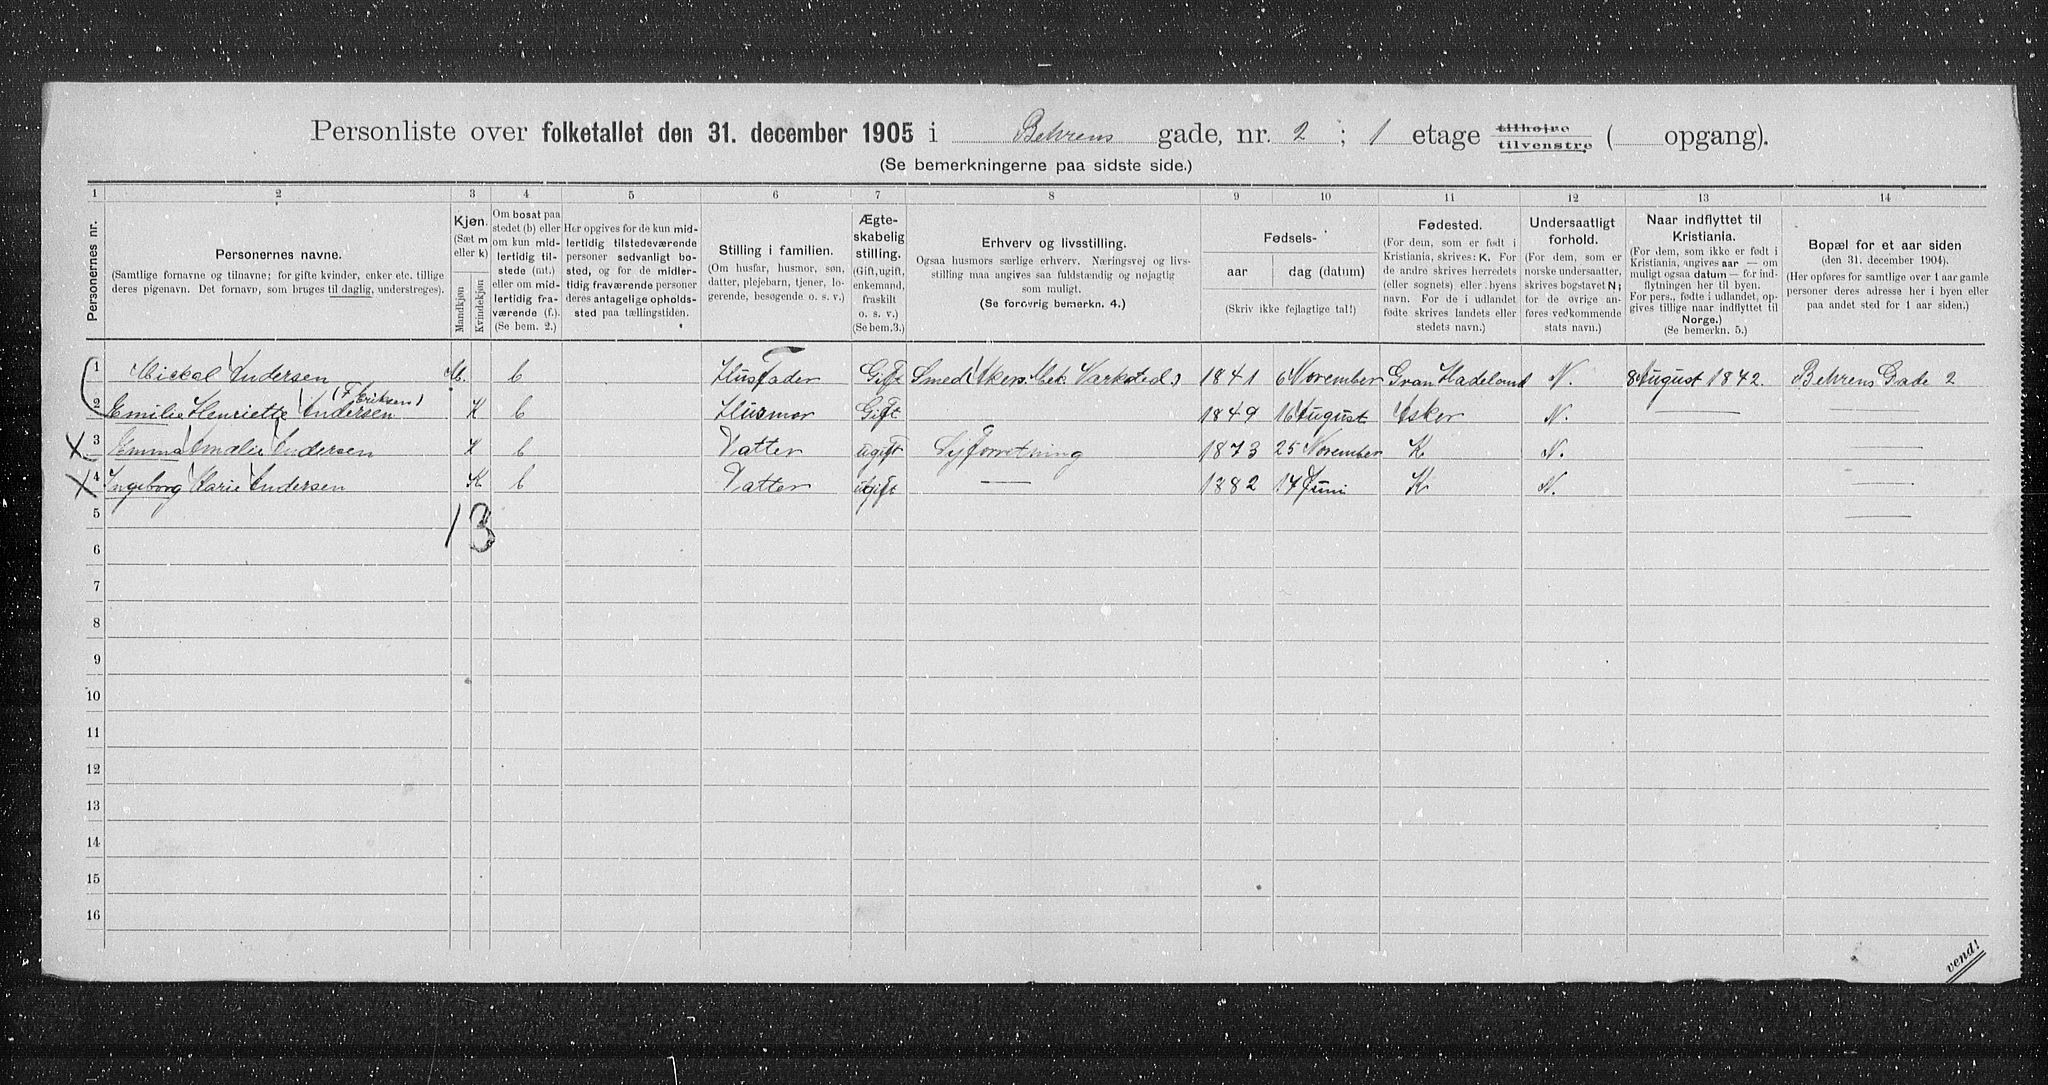 Personliste over folketallet den 31. december 1905 i Behrens gade, nr. 2 ; 1 etage tilhøire tilvenstre ( opgang).
(Se bemerkningerne paa sidste side.)
1 2 3 4 5 6 7 8 9 10 11 12 13 14
Personernes nr.
Personernes navne.
(Samtlige fornavne og tilnavne; for gifte kvinder, enker etc. tillige
deres pigenavn. Det fornavn, som bruges til daglig, understreges).
Kjøn.
(Sæt m
eller k)
Mandkjøn
Kvindekjøn
Om bosat paa
stedet (b) eller
om kun mid-
lertidig til-
stede (mt.)
eller om mid-
lertidig fra-
værende (f.)
(Se bem. 2.)
Her opgives for de kun mid-
lertidig tilstedeværende
personer sedvanlig bo-
sted, og for de midler-
tidig fraværende personer
deres antagelige opholds-
sted paa tællingstiden.
Stilling i familien.
(Om husfar, husmor, søn,
datter, plejebarn, tjener, lo-
gerende, besøgende o. s. v.)
Ægte-
skabelig
stilling.
(Gift, ugift,
enkemand,
fraskilt
o. s. v.)
(Se bem.3.)
Erhverv og livsstilling.
Ogsaa husmors særlige erhverv. Næringsvej og livs-
stilling maa angives saa fuldstændig og nøjagtig
som muligt.
(Se forøvrig bemerkn. 4.)
Fødsels-
aar
dag (datum)
(Skriv ikke fejlagtige tal!)
Fødested.
(For dem, som er født i
Kristiania, skrives: K. For
de andre skrives herredets
(eller sognets) eller byens
navn. For de i udlandet
fødte skrives landets eller
stedets navn.)
Undersaatligt
forhold.
(For dem, som er
norske undersaatter,
skrives bogstavet N;
for de øvrige an-
føres vedkommende
stats navn.)
Naar indflyttet til
Kristiania.
(For dem, som ikke er født i
Kristiania, angives aar — om
muligt ogsaa datum — for ind-
flytningen her til byen.
For pers., fødte i udlandet, op-
gives tillige naar indflyttet til
Norge.)
(Se bemerkn. 5.)
Bopæl for et aar siden
(den 31. december 1904).
(Her opføres for samtlige over 1 aar gamle
personer deres adresse her i byen eller
paa andet sted for 1 aar siden.)
1 Mickal Andersen M. b Husfader Gift Smed Akers Mek Varksted 1841 6 November Gran Hadeland N. 8 August 1842. Behrens Grade 2
(F Eriksen)
2 Emilie Henriette Andersen K b Husmor Gift 1849 16 August Asker N. — —
X 3 Emma Amalie Andersen K b Datter ugift Syforretning 1873 25 November K N. —
X 4 Ingeborg Marie Andersen K b Datter ugift — 1882 14 Juni K N. —
5 —
1 3
6
7
8
9
10
11
12
13
14
15
16
vend!